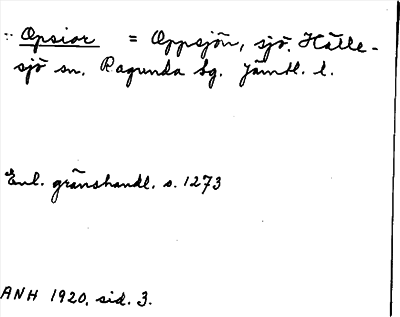 Opsior = Oppsjön, sjö. Hälle-
sjö sn. Ragunda tg. Jämtl. l.
Enl. gränshandl. s. 1273
ANH 1920, sid. 3.